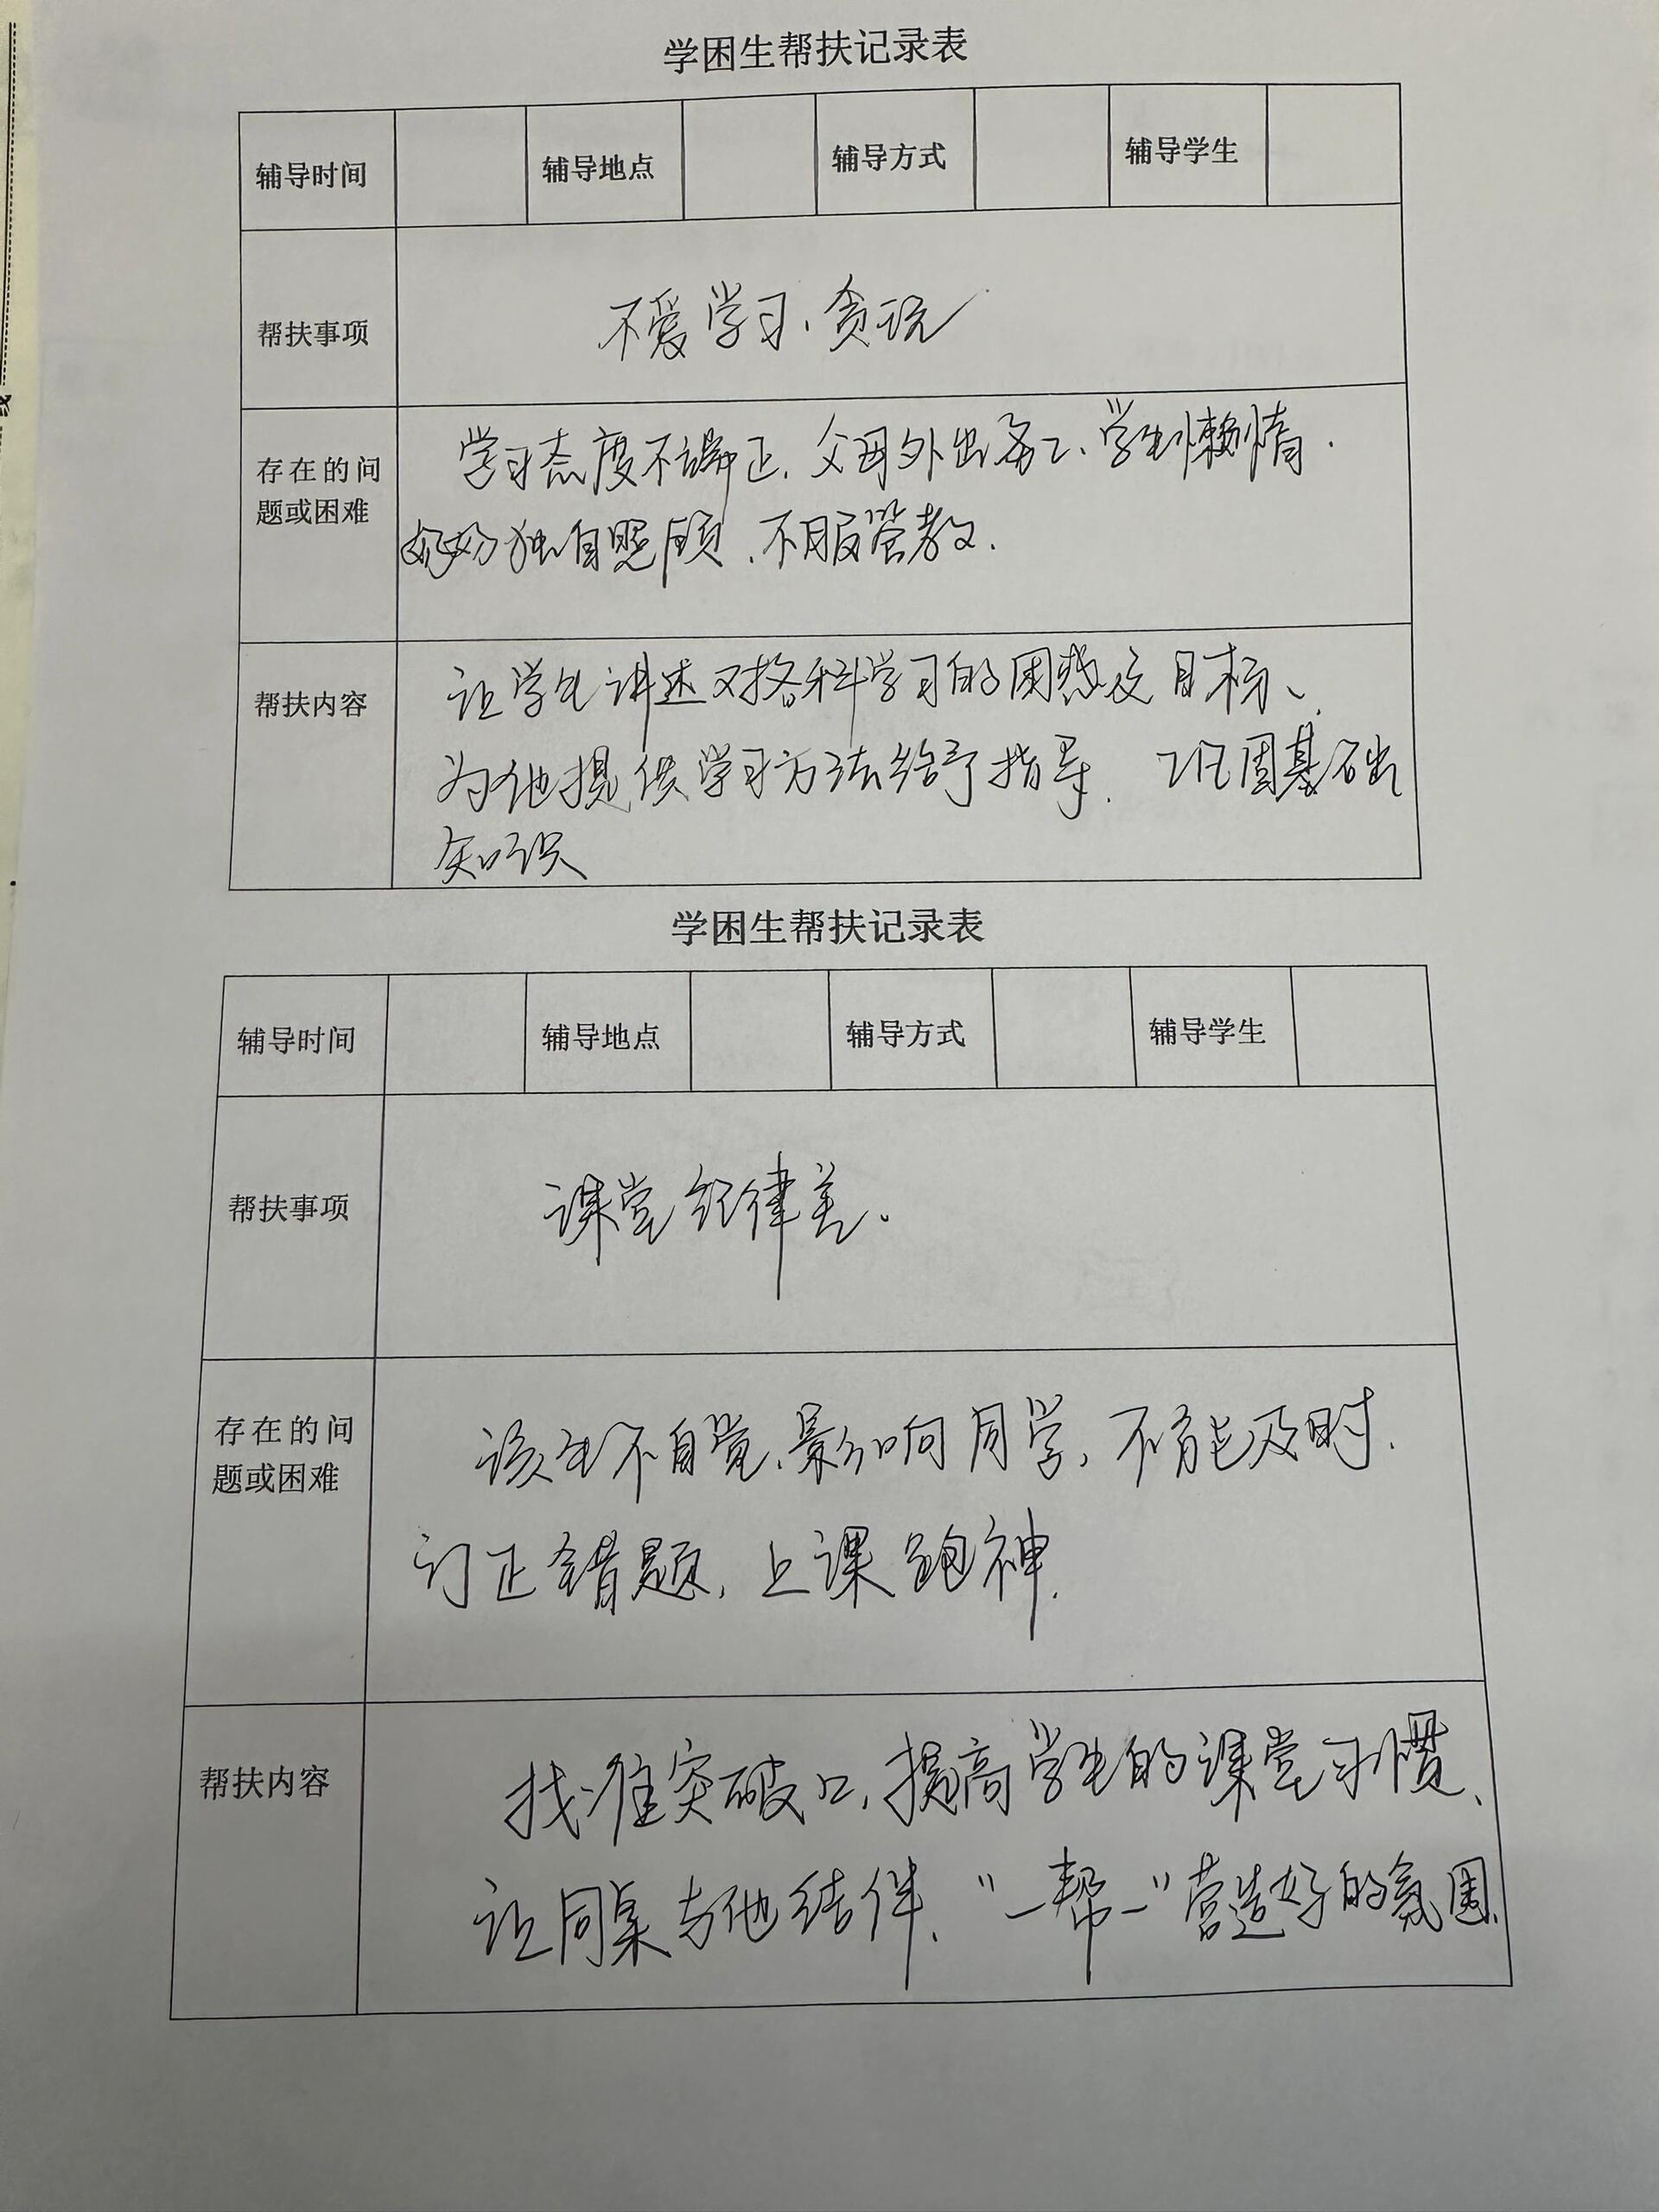 学困生帮扶记录表
辅导时间 辅导地点 辅导方式 辅导学生
帮扶事项 不爱学习、贪玩
存在的问
题或困难
学习态度不端正，父母外出务工、学生懒惰.
奶奶独自照顾、不服管教.
帮扶内容
让学生讲述对各科学习的困惑及目标、
为他提供学习方法给予指导. 巩固基础
知识
学困生帮扶记录表
辅导时间 辅导地点 辅导方式 辅导学生
帮扶事项 课堂纪律差。
存在的问
题或困难
该生不自觉、影响同学，不能及时.
订正错题，上课跑神.
帮扶内容
找准突破口，提高学生的课堂习惯、
让同桌与他结伴. “一帮一”营造好的氛围.